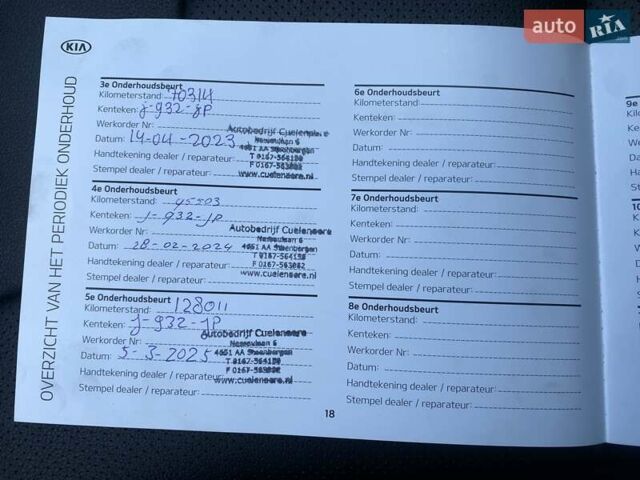 auto RIA .com
KIA
OVERZICHT VAN HET PERIODIEK ONDERHOUD
3e Onderhoudsbeurt
Kilometerstand: 70314
Kenteken: J-932-JP
Werkorder Nr:
Autobedrijf Cuelenaere
Datum: 14-04-2023
4651 AA Steenbergen
Handtekening dealer / reparateur:
T 0167-564150
Stempel dealer / reparateur:
www.cuelenaere.nl
4e Onderhoudsbeurt
Kilometerstand: 95503
Kenteken: J-932-JP
Werkorder Nr:
Autobedrijf Cuelenaere
Datum: 28-02-2024
4651 AA Steenbergen
Handtekening dealer / reparateur:
Stempel dealer / reparateur:
www.cuelenaere.nl
5e Onderhoudsbeurt
Kilometerstand: 128011
Kenteken: J-932-JP
Werkorder Nr:
Autobedrijf Cuelenaere
Datum: 5-3-2025
4651 AA Steenbergen
Handtekening dealer / reparateur:
Stempel dealer / reparateur:
www.cuelenaere.nl
6e Onderhoudsbeurt
Kilometerstand:
Kenteken:
Werkorder Nr:
Datum:
Handtekening dealer / reparateur:
Stempel dealer / reparateur:
7e Onderhoudsbeurt
Kilometerstand:
Kenteken:
Werkorder Nr:
Datum:
Handtekening dealer / reparateur:
Stempel dealer / reparateur:
8e Onderhoudsbeurt
Kilometerstand:
Kenteken:
Werkorder Nr:
Datum:
Handtekening dealer / reparateur:
Stempel dealer / reparateur:
18
9e
Kilo
Ken
Wer
Dat
Han
Ste
10
Kil